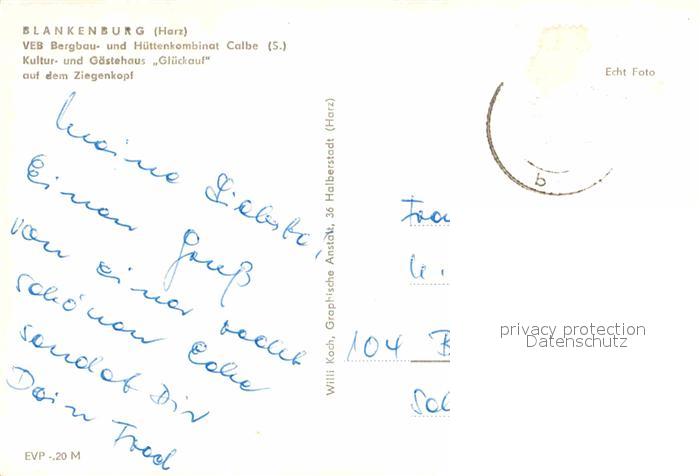 BLANKENBURG (Harz)
VEB Bergbau- und Hüttenkombinat Calbe (S.)
Kultur- und Gästehaus „Glückauf"
auf dem Ziegenkopf
Echt Foto
Meine Liebste,
Einen Gruß
von einer recht
schönen Ecke
sendet Dir
Dein Fred
Willi Koch, Graphische Anstalt, 36 Halberstadt (Harz)
b
104 B
privacy protection
Datenschutz
EVP -.20 M